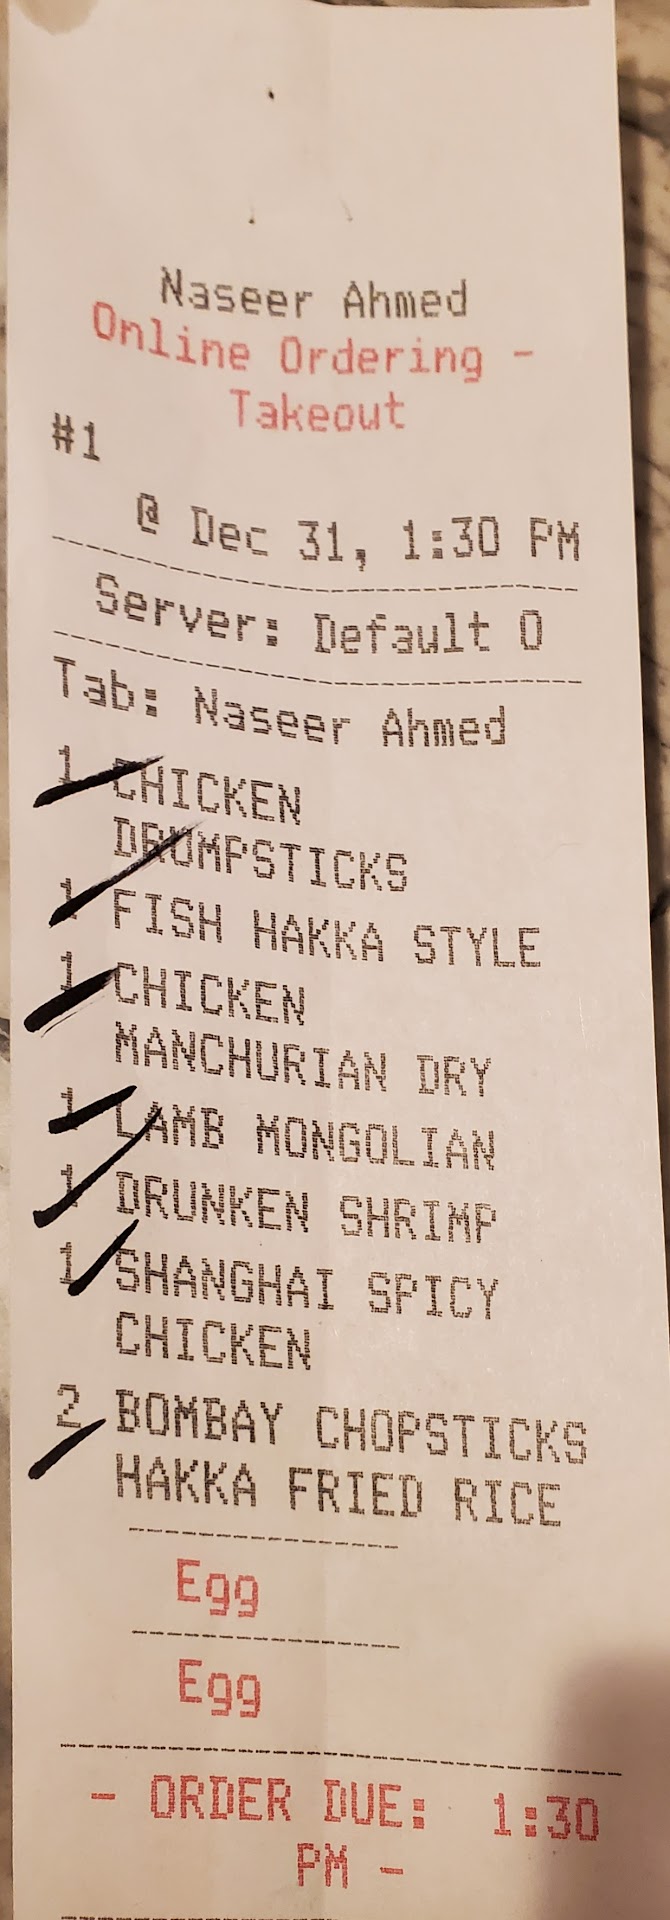 Naseer Ahmed
Online Ordering -
Takeout
#1
@ Dec 31, 1:30 PM
Server: Default O
Tab: Naseer Ahmed
1 CHICKEN
DRUMPSTICKS
1 FISH HAKKA STYLE
1 CHICKEN
MANCHURIAN DRY
1 LAMB MONGOLIAN
1 DRUNKEN SHRIMP
1 SHANGHAI SPICY
CHICKEN
2 BOMBAY CHOPSTICKS
HAKKA FRIED RICE
Egg
Egg
- ORDER DUE: 1:30
PM -